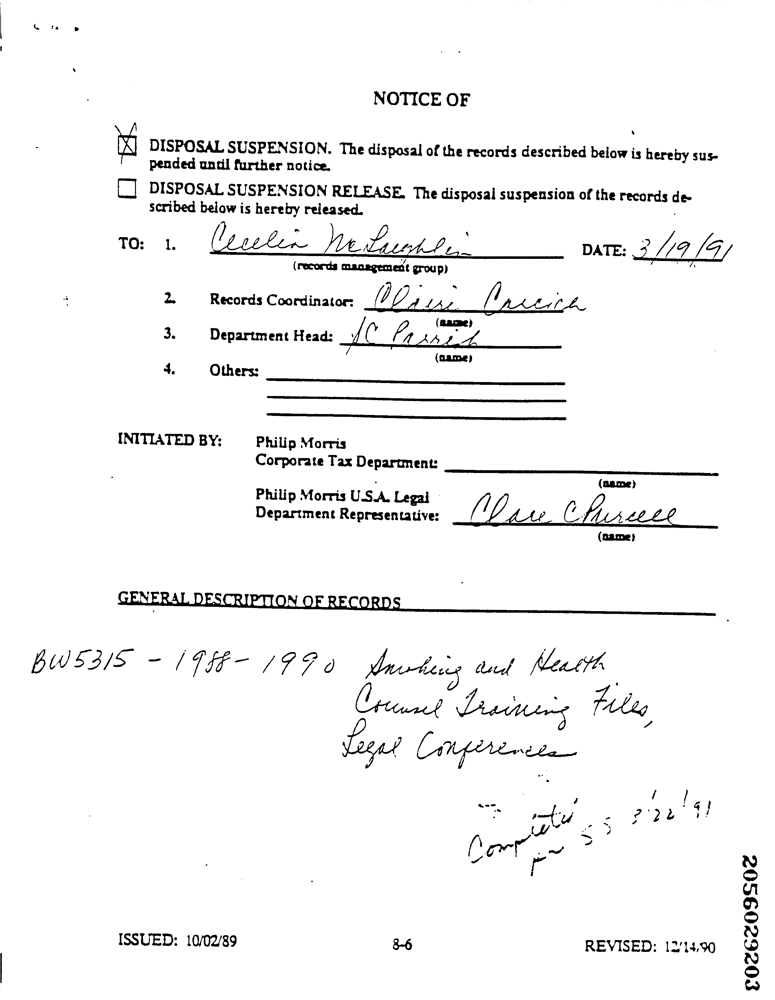 NOTICE OF
DISPOSAL SUSPENSION. The disposal of the records described below is hereby sus-
pended until further notice.
DISPOSAL SUSPENSION RELEASE. The disposal suspension of the records de-
scribed below is hereby released.
TO: 1. Cecelia McLaughlin DATE: 3/19/91
(records management group)
2. Records Coordinator: Claire
(name)
3. Department Head: JC Parrish
(name)
4. Others:
INITIATED BY: Philip Morris
Corporate Tax Department:
(name)
Philip Morris U.S.A. Legal
Department Representative: Clare C Purcell
(name)
GENERAL DESCRIPTION OF RECORDS
BW5315 - 1988-1990 Smoking and Health
Counsel Training Files,
Legal Conferences
Completed 3/22/91
SS
ISSUED: 10/02/89 8-6 REVISED: 12/14/90
2056029203